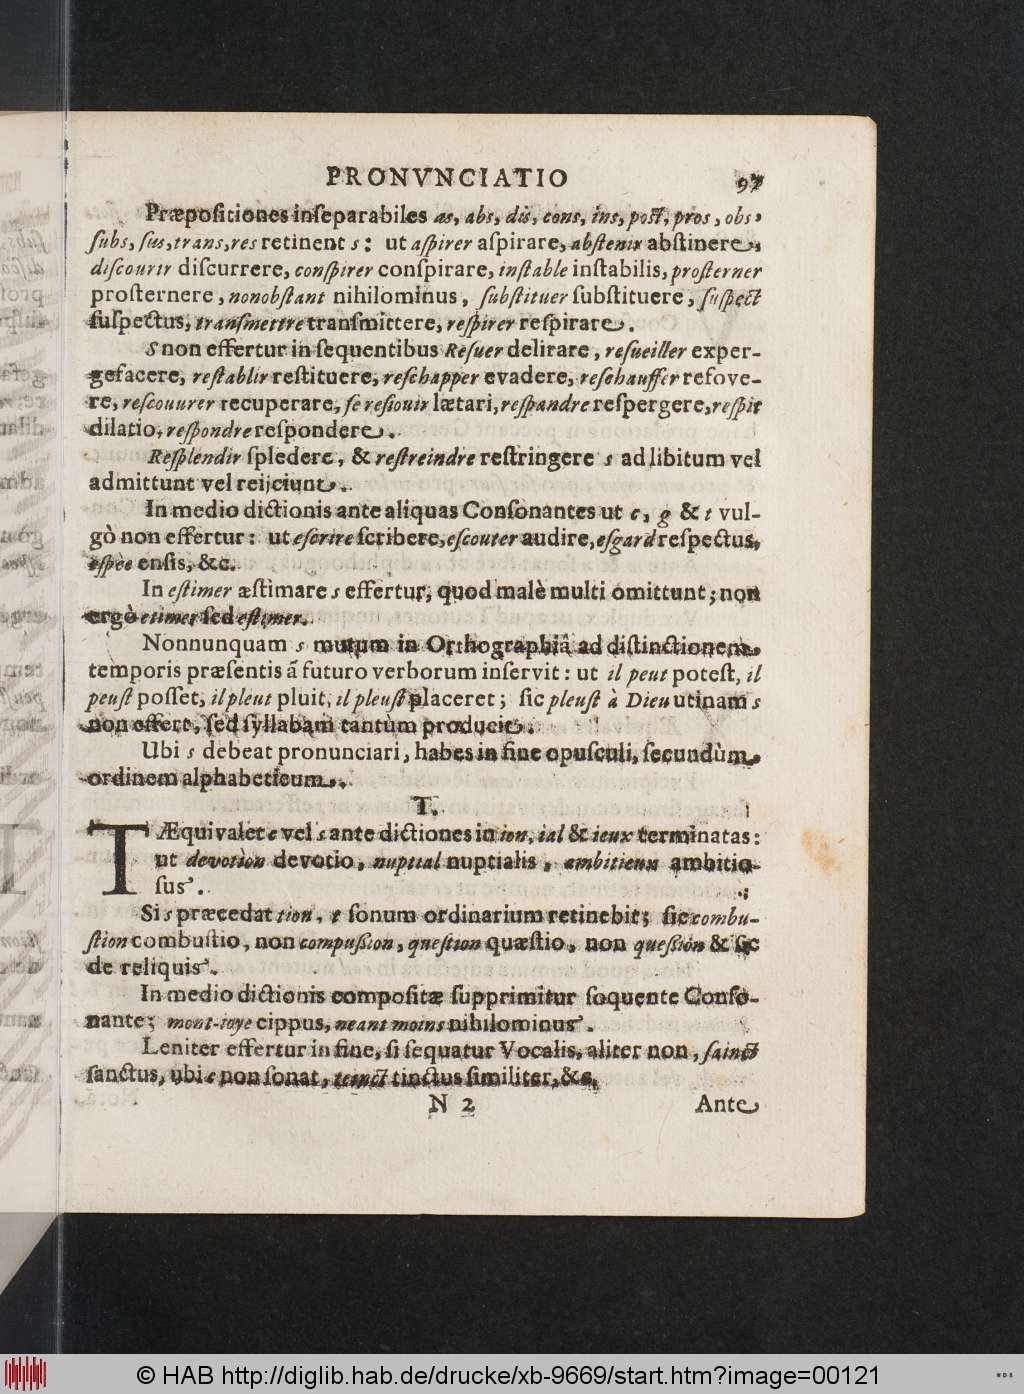 PRONVNCIATIO 97
Præpoſitiones inſeparabiles as, abs, dis, cons, ins, poſt, pros, obs,
ſubs, ſus, trans, res retinent s: ut aſpirer aſpirare, abſtenir abſtinere,
diſcourir diſcurrere, conſpirer conſpirare, inſtable inſtabilis, proſterner
proſternere, nonobſtant nihilominus, ſubſtituer ſubſtituere, ſuſpect
ſuſpectus, tranſmettre tranſmittere, reſpirer reſpirare.
S non effertur in ſequentibus Reſuer delirare, reſueiller exper-
gefacere, reſtablir reſtituere, reſchapper evadere, reſchauffer refove-
re, reſcouurer recuperare, ſe reſiouir lætari, reſpandre reſpergere, reſpit
dilatio, reſpondre reſpondere.
Reſplendir ſpledere, & reſtreindre reſtringere s ad libitum vel
admittunt vel reijciunt.
In medio dictionis ante aliquas Conſonantes ut c, g & t vul-
gò non effertur: ut eſcrire ſcribere, eſcouter audire, eſgard reſpectus,
eſpèe enſis, &c.
In eſtimer æſtimare s effertur, quod malè multi omittunt; non
ergò etimer ſed eſtimer.
Nonnunquam s mutum in Orthographiâ ad diſtinctionem
temporis præſentis ã futuro verborum inſervit: ut il peut poteſt, il
peuſt poſſet, il pleut pluit, il pleuſt placeret; ſic pleuſt à Dieu utinam s
non effert, ſed ſyllabam tantùm producit.
Ubi s debeat pronunciari, habes in fine opuſculi, ſecundùm
ordinem alphabeticum.
T.
TÆquivalet c vel s ante dictiones in ion, ial & ieux terminatas:
ut devotion devotio, nuptial nuptialis, ambitieux ambitio-
ſus.
Si s præcedat tion, t ſonum ordinarium retinebit; ſic combu-
ſtion combuſtio, non compuſsion, queſtion quæſtio, non queſsion & ſic
de reliquis.
In medio dictionis compoſitæ ſupprimitur ſoquente Conſo-
nante; mont-ioye cippus, neant moins nihilominus.
Leniter effertur in fine, ſi ſequatur Vocalis, aliter non, ſainct
ſanctus, ubi c non ſonat, teinct tinctus ſimiliter, &c.
N 2 Ante
© HAB http://diglib.hab.de/drucke/xb-9669/start.htm?image=00121